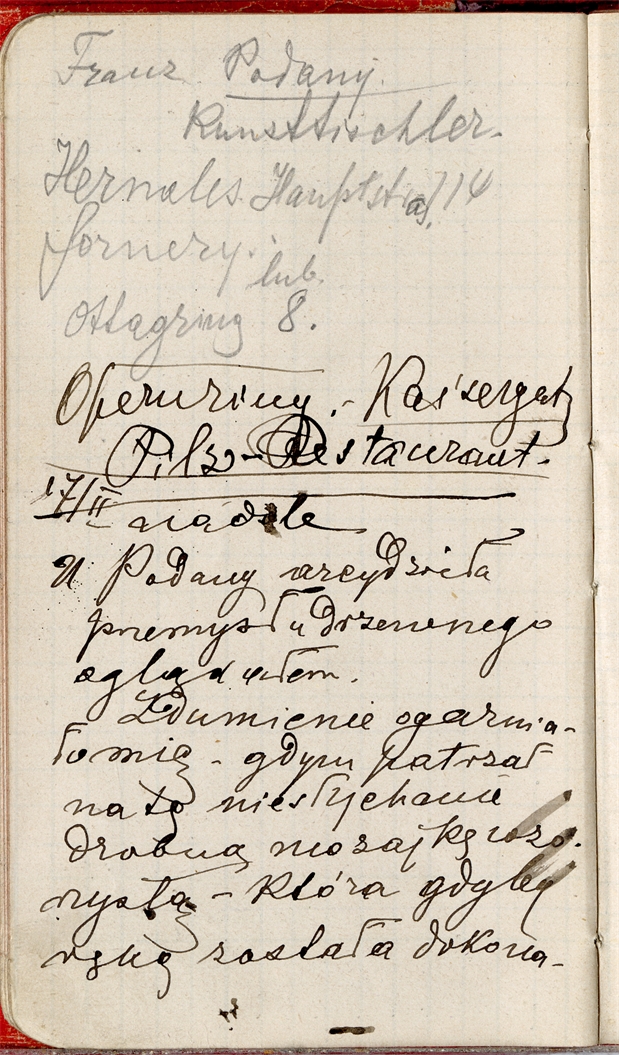 Franz Podany
Kunsttischler.
Hernals Hauptstraß. 14
fornery.
lub.
Ottagring 8.
Opernring. - Kaisergart
Pilz-Restaurant.
17/II na dole
U Podany arcydzieła
przemysłu drzewnego
oglądałem.
Zdumienie ogarnia-
ło mię - gdym patrzał
na tę niesłychanie
drobną mozajkę wzo-
rystą - która gdyby
ręką została dokona-